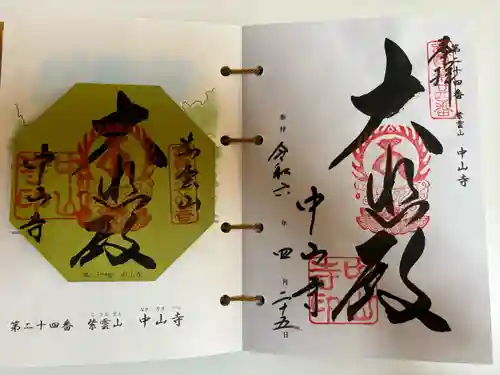 奉拝
第二十四番 紫雲山 中山寺
大悲殿
中山寺
奉拝 令和六年四月二十五日
紫雲山
大悲殿
中山寺
第二十四番 紫雲山 中山寺